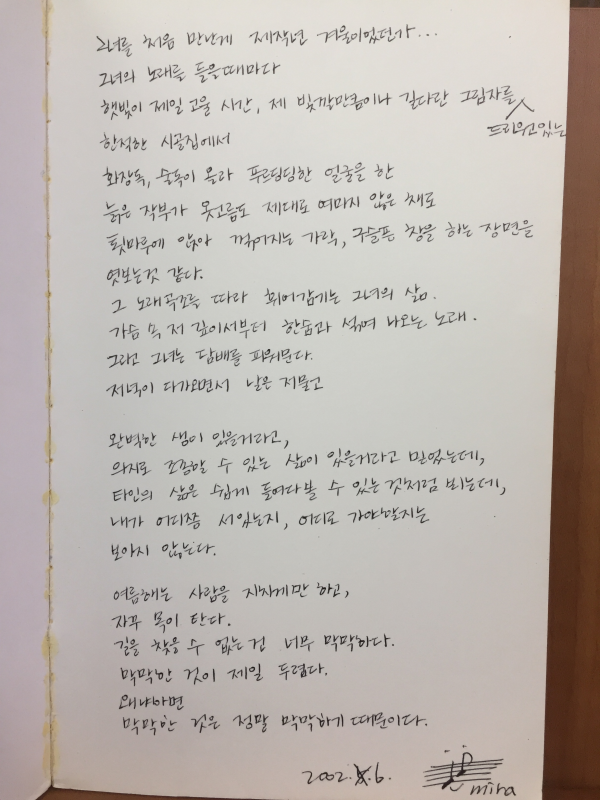 그녀를 처음 만난게 제작년 겨울이었던가...
그녀의 노래를 들을때마다
햇빛이 제일 고울 시간, 제 빛깔만큼이나 길다란 그림자를
드리워고있는
한적한 시골집에서
화장독, 술독이 올라 푸르딩딩한 얼굴을 한
늙은 작부가 옷고름도 제대로 여미지 않은 채로
툇마루에 앉아 꺾어지는 가락, 구슬픈 창을 하는 장면을
엿보는것 같다.
그 노래곡조를 따라 휘어감기는 그녀의 삶.
가슴 속 저 깊이서부터 한숨과 섞여 나오는 노래.
그리고 그녀는 담배를 피워문다.
저녁이 다가오면서 날은 저물고
완벽한 생이 있을거라고,
의지로 조종할 수 있는 삶이 있을거라고 믿었는데,
타인의 삶은 쉽게 들여다볼 수 있는것처럼 뵈는데,
내가 어디쯤 서있는지, 어디로 가야할지는
보이지 않는다.
여름해는 사람을 지치게만 하고,
자꾸 목이 탄다.
길을 찾을 수 없는 건 너무 막막하다.
막막한 것이 제일 두렵다.
왜냐하면
막막한 것은 정말 막막하기 때문이다.
2002. 6.
mira